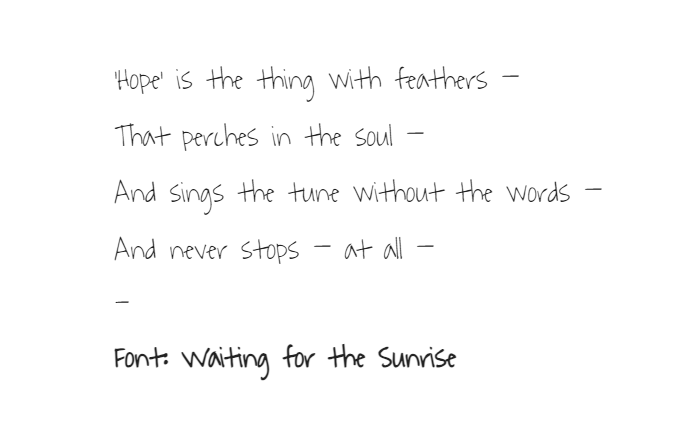 'Hope' is the thing with feathers —
That perches in the soul —
And sings the tune without the words —
And never stops — at all —
—
Font: Waiting for the Sunrise